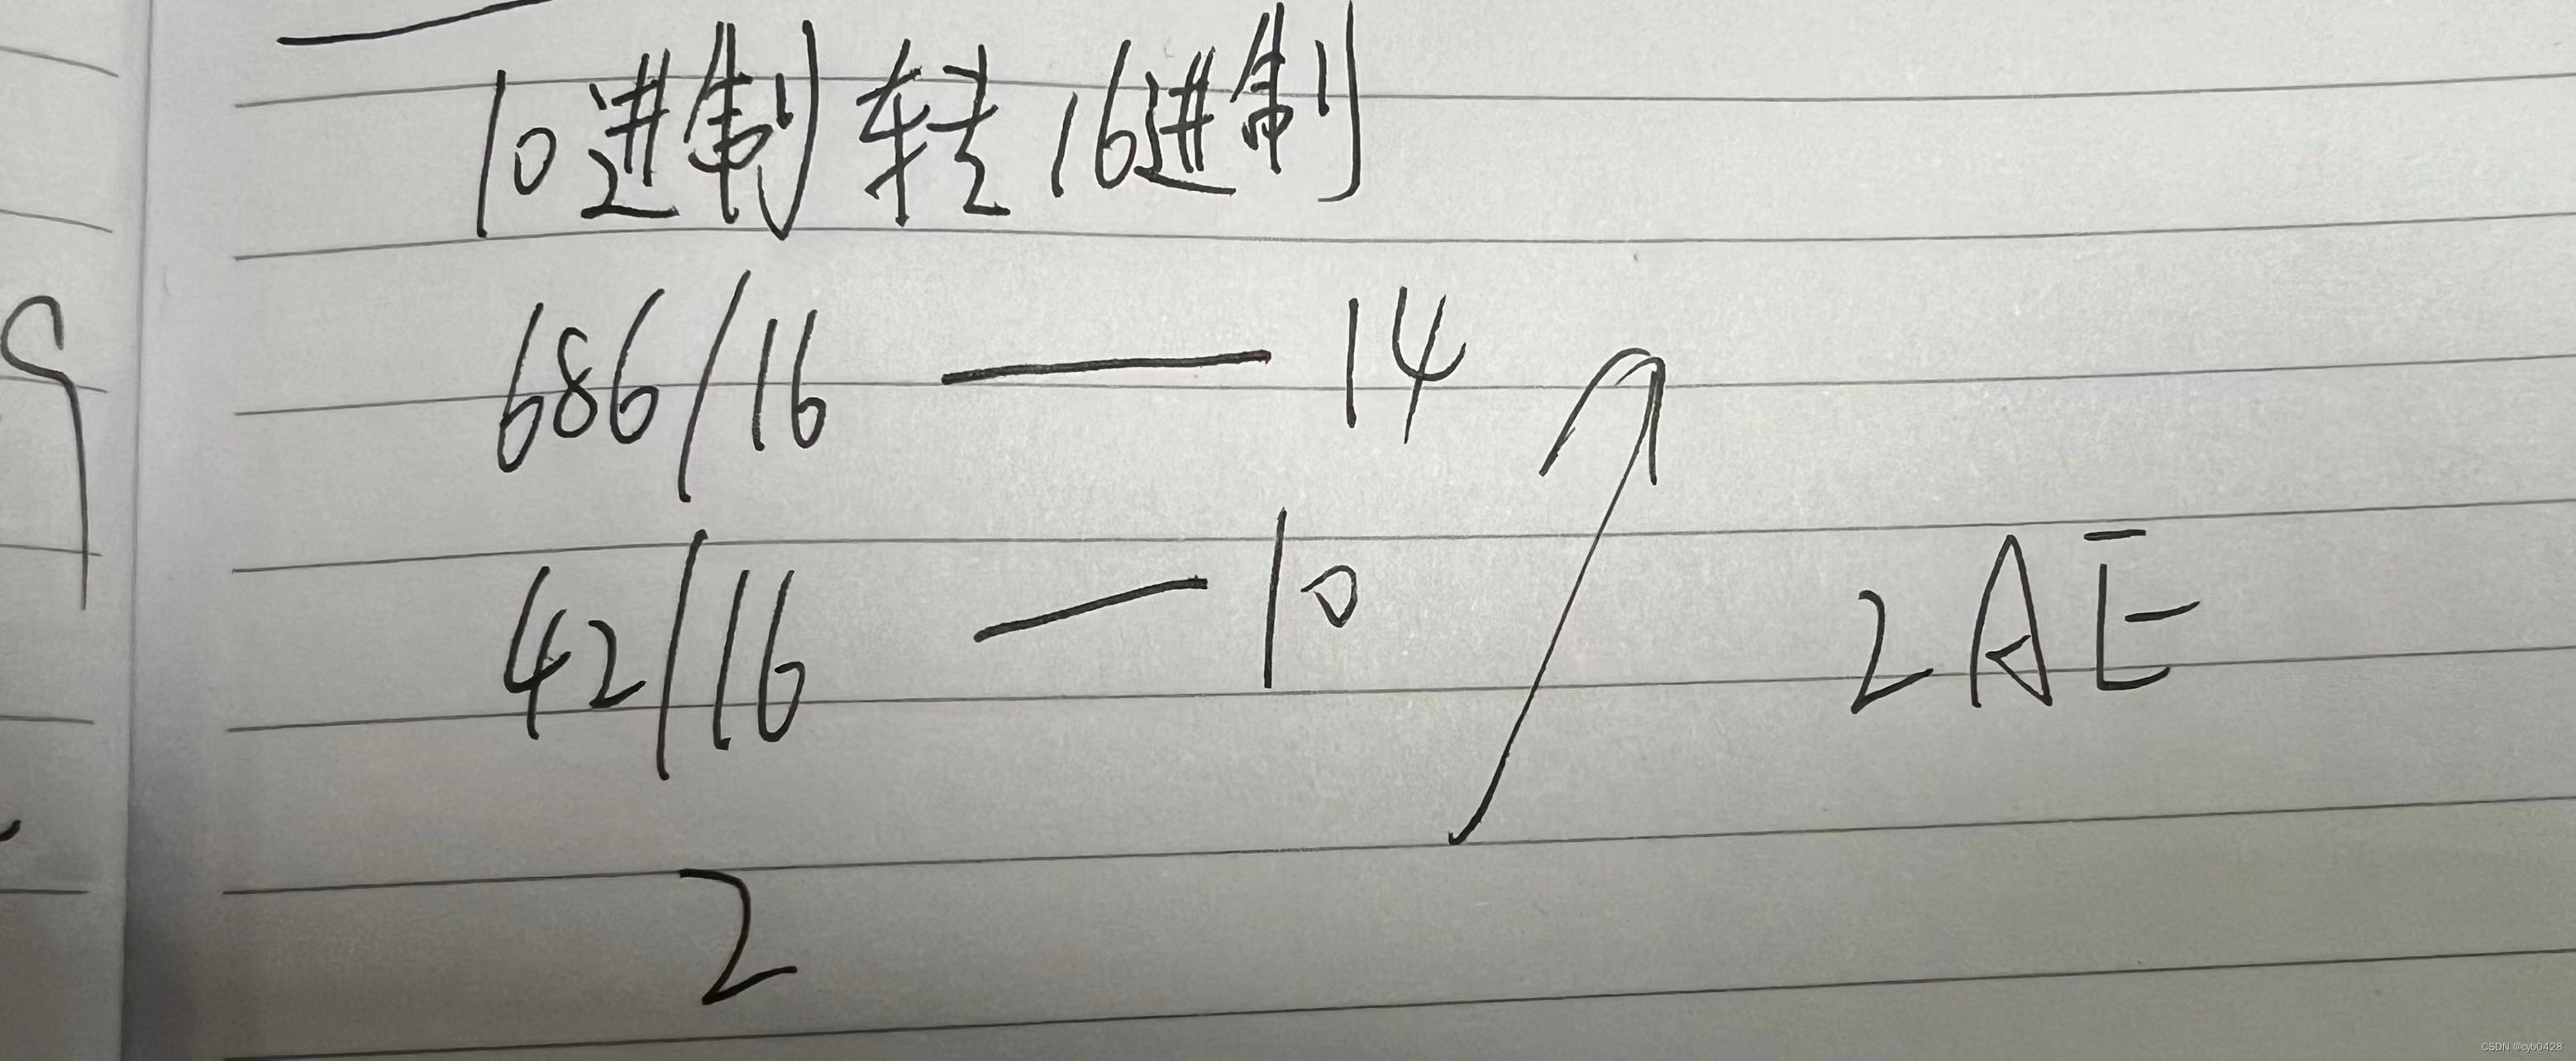 10进制转16进制
686/16 — 14
42/16 — 10
2AE
2
CSDN @cyb0428